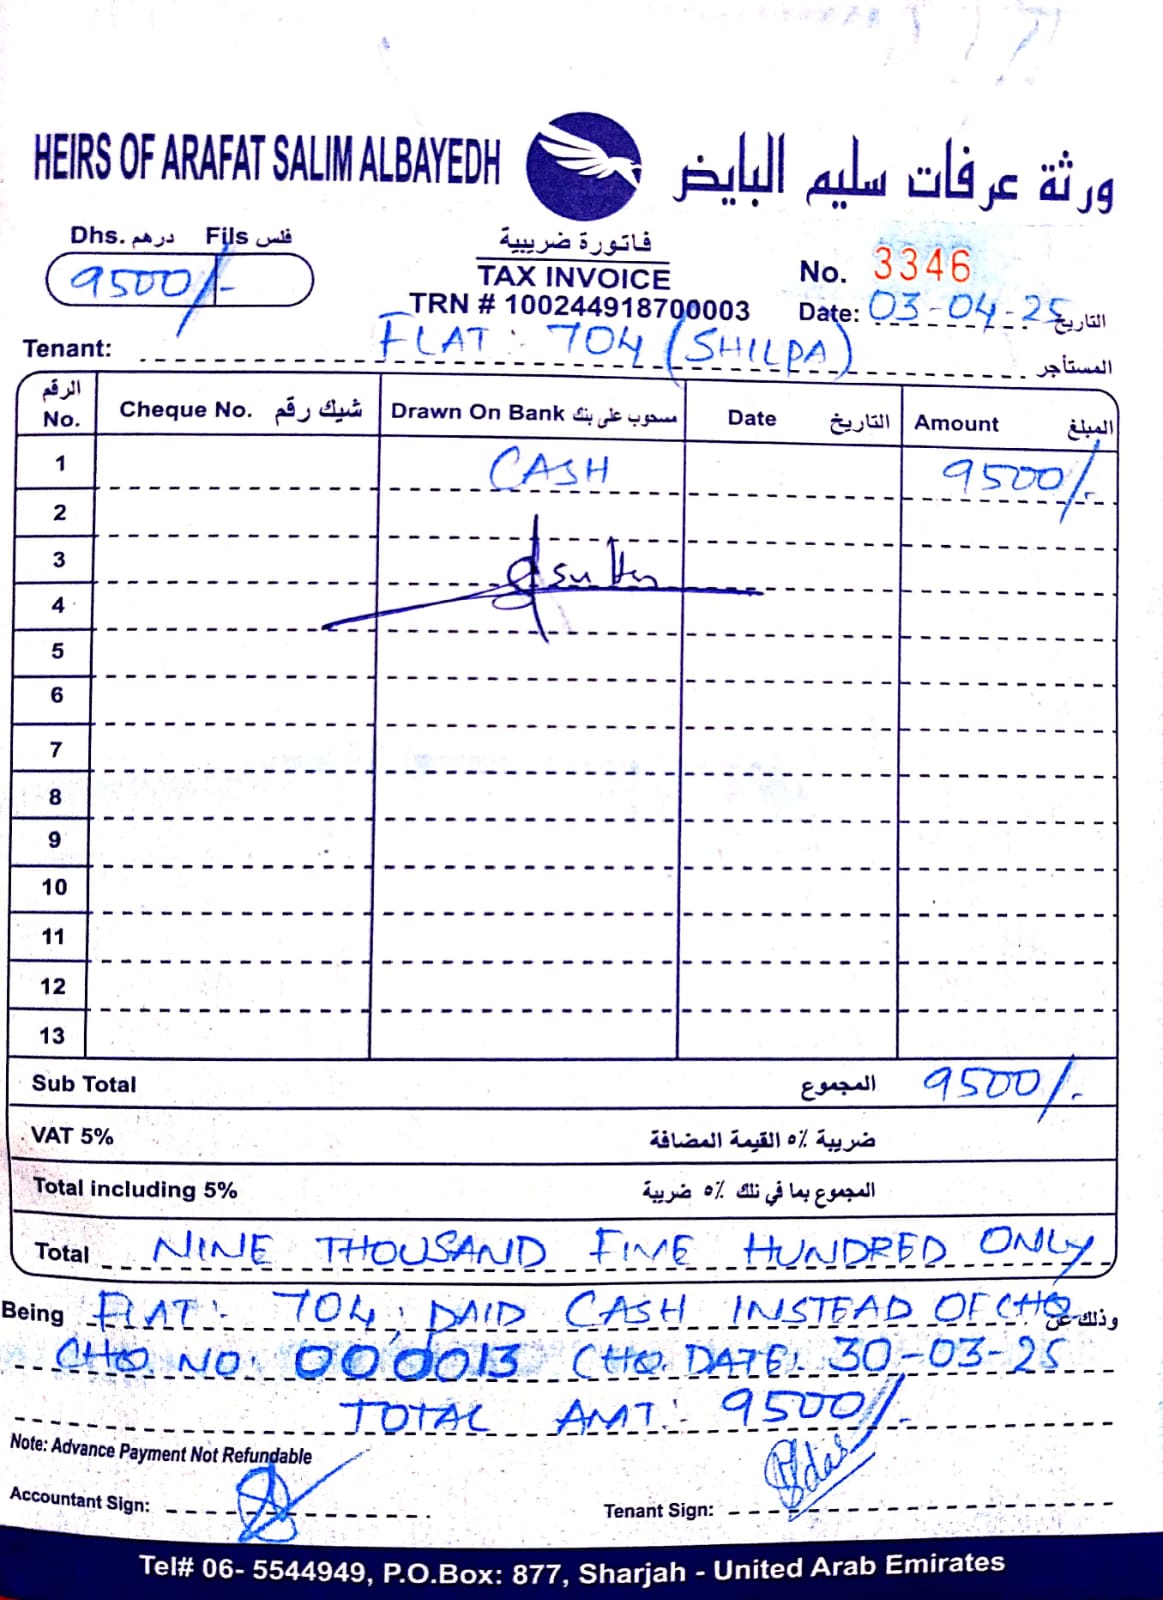 HEIRS OF ARAFAT SALIM ALBAYEDH ورثة عرفات سليم البايض
Dhs. درهم Fils فلس
9500/-
فاتورة ضريبية
TAX INVOICE
TRN # 100244918700003
No. 3346
Date: 03-04-25 التاريخ
Tenant: FLAT: 704 (SHILPA) المستأجر
الرقم No. Cheque No. شيك رقم Drawn On Bank مسحوب على بنك Date التاريخ Amount المبلغ
1 CASH 9500/-
2
3
4
5
6
7
8
9
10
11
12
13
Sub Total المجموع 9500/-
VAT 5% ضريبة ٥٪ القيمة المضافة
Total including 5% المجموع بما في تلك ٥٪ ضريبة
Total NINE THOUSAND FIVE HUNDRED ONLY
Being FLAT: 704, PAID CASH INSTEAD OF CHQ وذلك عن
CHQ NO: 000013 CHQ. DATE: 30-03-25
TOTAL AMT: 9500/-
Note: Advance Payment Not Refundable
Accountant Sign:
Tenant Sign:
Tel# 06- 5544949, P.O.Box: 877, Sharjah - United Arab Emirates